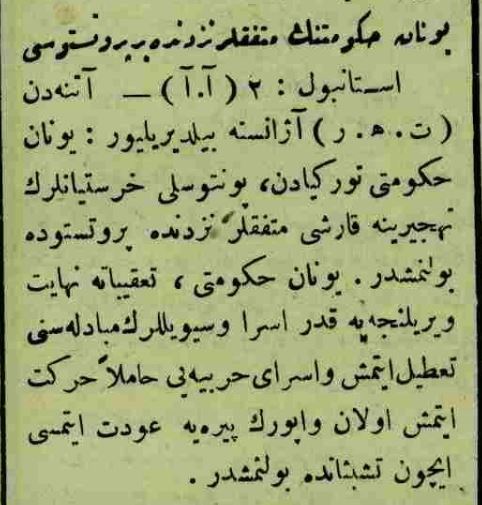 یونان حكومتنك متفقلر نزدنده بر پروتستوسی
استانبول : ۲ ( آ.آ ) — آتنه‌دن
( ت . ه . ر ) آژانسنه بیلدیریلیور : یونان
حكومتی توركیادن، پونتوسلی خرستیانلرك
تهجیرینه قارشی متفقلر نزدنده پروتستوده
بولنمشدر . یونان حكومتی ، تعقیباته نهایت
ویریلنجه‌یه قدر اسرا وسیویللرك مبادله‌سنی
تعطیل ایتمش واسرای حربیه‌یی حاملاً حركت
ایتمش اولان واپورك پیره‌یه عودت ایتمسی
ایچون تشبثاتده بولنمشدر .